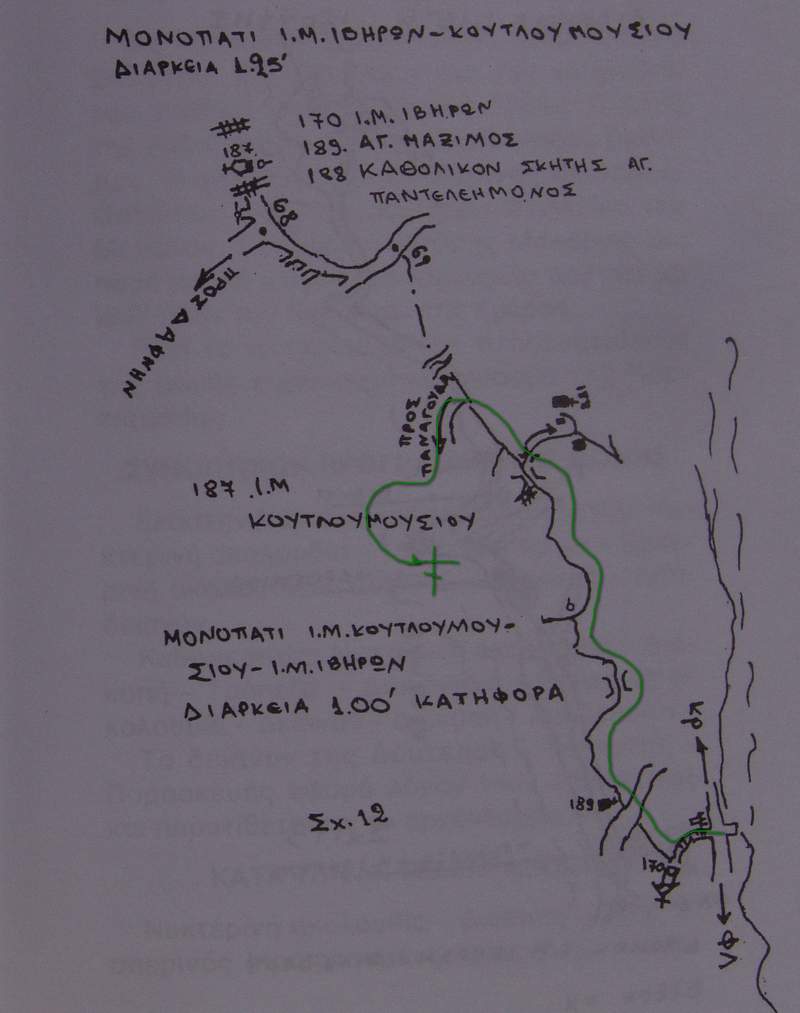 ΜΟΝΟΠΑΤΙ Ι.Μ. ΙΒΗΡΩΝ-ΚΟΥΤΛΟΥΜΟΥΣΙΟΥ
ΔΙΑΡΚΕΙΑ 1.25'
170 Ι.Μ. ΙΒΗΡΩΝ
189. ΑΓ. ΜΑΞΙΜΟΣ
188 ΚΑΘΟΛΙΚΟΝ ΣΚΗΤΗΣ ΑΓ.
ΠΑΝΤΕΛΕΗΜΟΝΟΣ
187.
68
69
ΠΡΟΣ ΔΑΦΝΗΝ
ΠΡΟΣ
ΠΑΝΑΓΟΥΔΑ
187 .Ι.Μ
ΚΟΥΤΛΟΥΜΟΥΣΙΟΥ
ΜΟΝΟΠΑΤΙ Ι.Μ.ΚΟΥΤΛΟΥΜΟΥ-
ΣΙΟΥ-Ι.Μ.ΙΒΗΡΩΝ
ΔΙΑΡΚΕΙΑ 1.00' ΚΑΤΗΦΟΡΑ
ΚΡ
189
Σχ. 12
170
ΛΦ